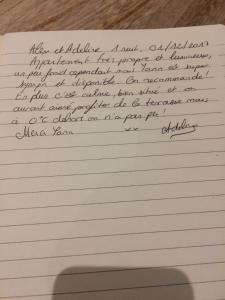 Alex et Adeline, 1 nuit, 02/12/2017
Appartement très propre et lumineux,
un peu froid cependant mais Yann est super
sympa et disponible. On recommande !
En plus c'est calme, bien situé et on
aurait aimé profiter de la terrasse mais
à 0°C dehors on n'a pas pu !
Merci Yann xx Adeline